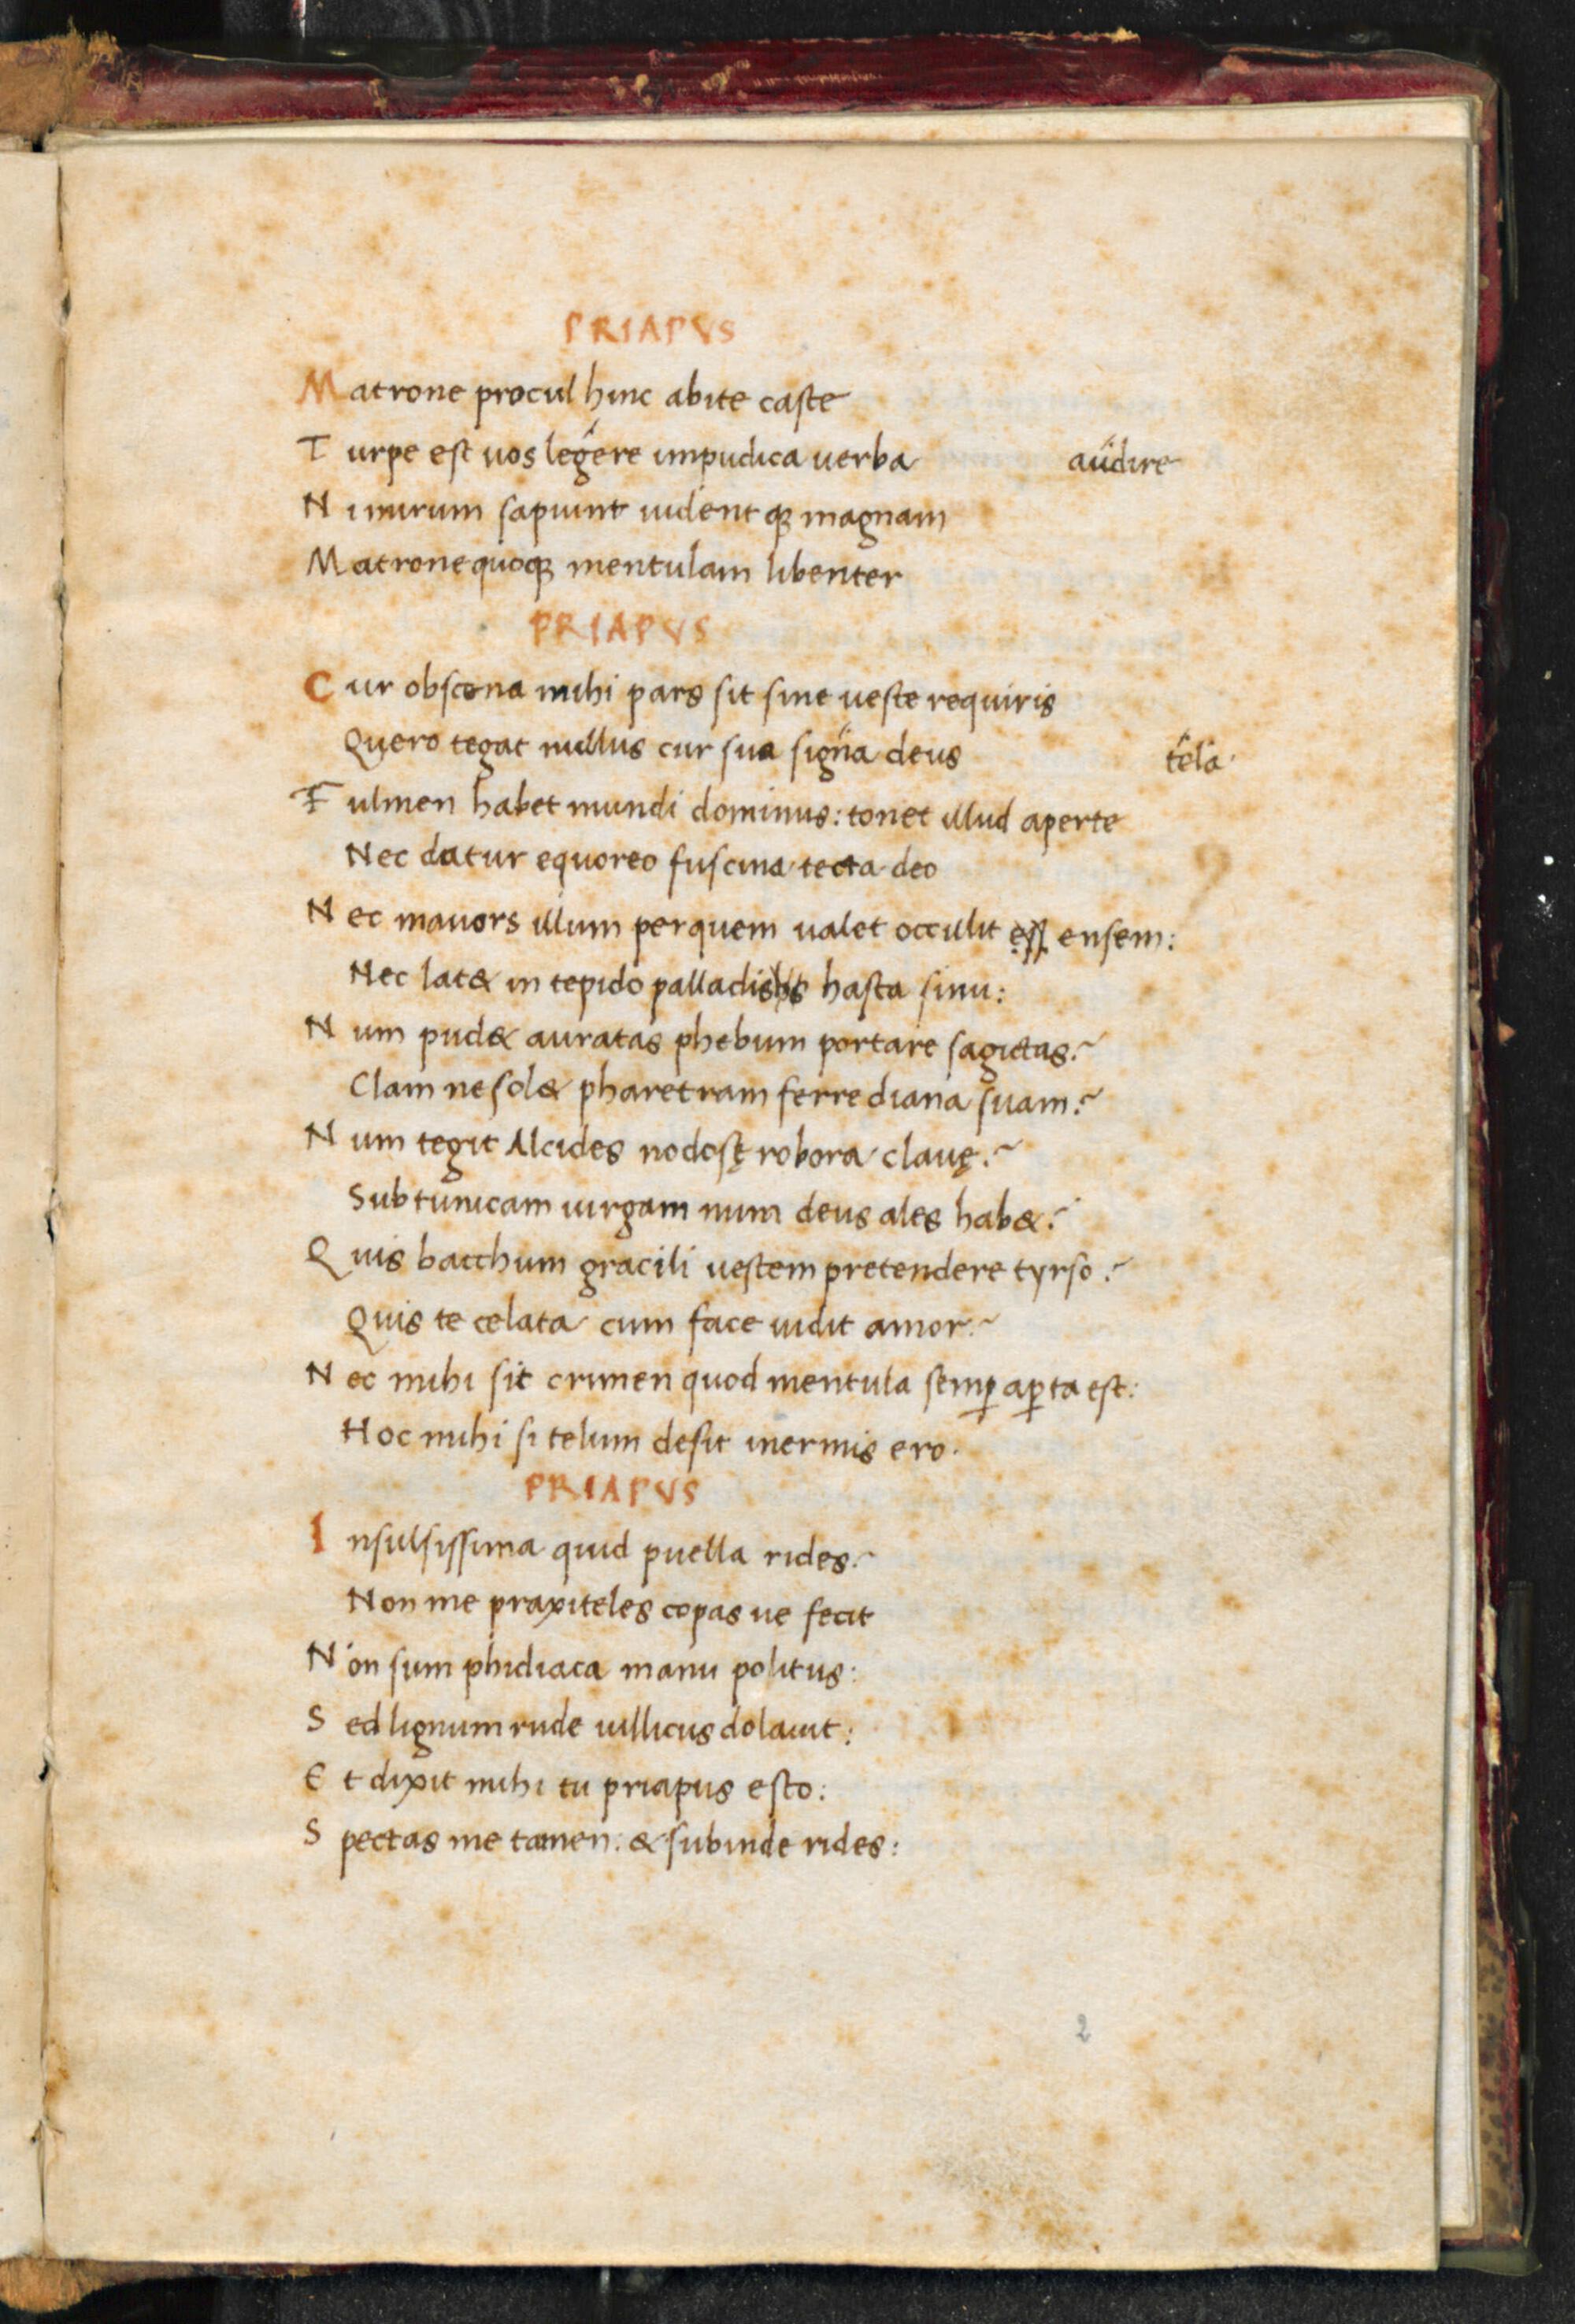 PRIAPVS
Matrone procul hinc abite caste
Turpe est uos legere impudica uerba audire
Nimirum sapiunt uident q; magnam
Matrone quoq; mentulam libenter
PRIAPVS
Cur obscena mihi pars sit sine ueste requiris
Quero tegat nullus cur sua signa deus tela
Fulmen habet mundi dominus: tonet illud aperte
Nec datur equoreo fuscina tecta deo
Nec mauors illum per quem ualet occulit ensem:
Nec lat& in tepido palladis hasta sinu:
Num pud& auratas phebum portare sagittas?
Clam ne sol& pharetram ferre diana suam?
Num tegit Alcides nodosę robora clauę?
Sub tunicam uirgam num deus ales hab&?
Quis bacchum gracili uestem pretendere tyrso?
Quis te celata cum face uidit amor?
Nec mihi sit crimen quod mentula semp̱ ap̱ta est:
Hoc mihi si telum desit inermis ero.
PRIAPVS
Insulsissima quid puella rides?
Non me praxiteles copas ue fecit
Non sum phidiaca manu politus:
Sed lignum rude uillicus dolauit:
Et dixit mihi tu priapus esto:
Spectas me tamen: & subinde rides:
2